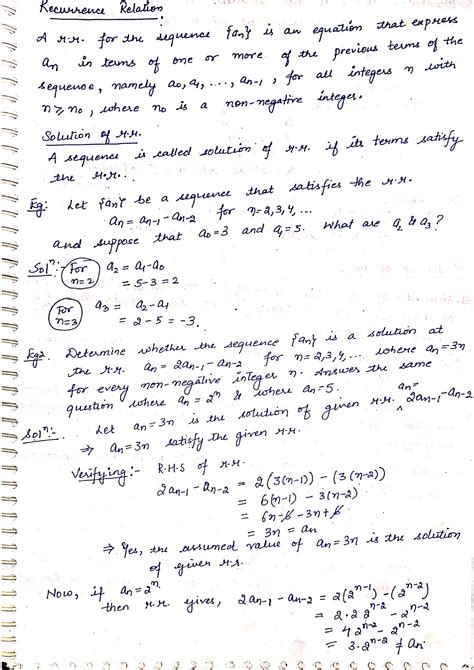 Recurrence Relation
A r.r. for the sequence {an} is an equation that express
an in terms of one or more of the previous terms of the
sequence, namely a0, a1, ..., an-1, for all integers n with
n≥n0, where n0 is a non-negative integer.
Solution of r.r.
A sequence is called solution of r.r. if its terms satisfy
the r.r.
Eg: Let {an} be a sequence that satisfies the r.r.
an = an-1 - an-2 for n=2,3,4, ...
and suppose that a0=3 and a1=5. What are a2 & a3?
Solⁿ:- For n=2 a2 = a1-a0
= 5-3 = 2
For n=3 a3 = a2-a1
= 2-5 = -3.
Eg2. Determine whether the sequence {an} is a solution of
the r.r. an = 2an-1 - an-2 for n=2,3,4, ... where an=3n
for every non-negative integer n. Answer the same
question where an = 2ⁿ & where an=5.
Solⁿ:- Let an=3n is the solution of given r.r. an = 2an-1 - an-2
⇒ an=3n satisfy the given r.r.
Verifying:- R.H.S of r.r.
2an-1 - an-2 = 2(3(n-1)) - (3(n-2))
= 6(n-1) - 3(n-2)
= 6n-6-3n+6
= 3n = an
⇒ Yes, the assumed value of an=3n is the solution
of given r.r.
Now, if an=2ⁿ.
then r.r. gives, 2an-1 - an-2 = 2(2ⁿ⁻¹) - (2ⁿ⁻²)
= 2.2 2ⁿ⁻² - 2ⁿ⁻²
= 4 2ⁿ⁻² - 2ⁿ⁻²
= 3.2ⁿ⁻² ≠ an